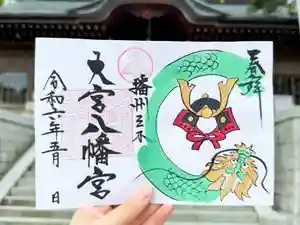 春拝
播州三木
大宮八幡宮
令和六年五月 日